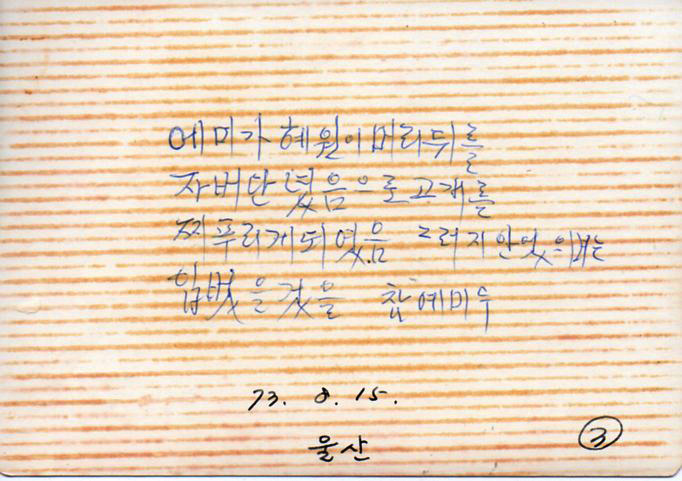 에미가 혜원이 머리뒤를
자버단녔음으로 고개를
찌푸리게 되였음 그러지 안엇으면는
입벗을것을 참 에미두
73. 8. 15.
울산
3